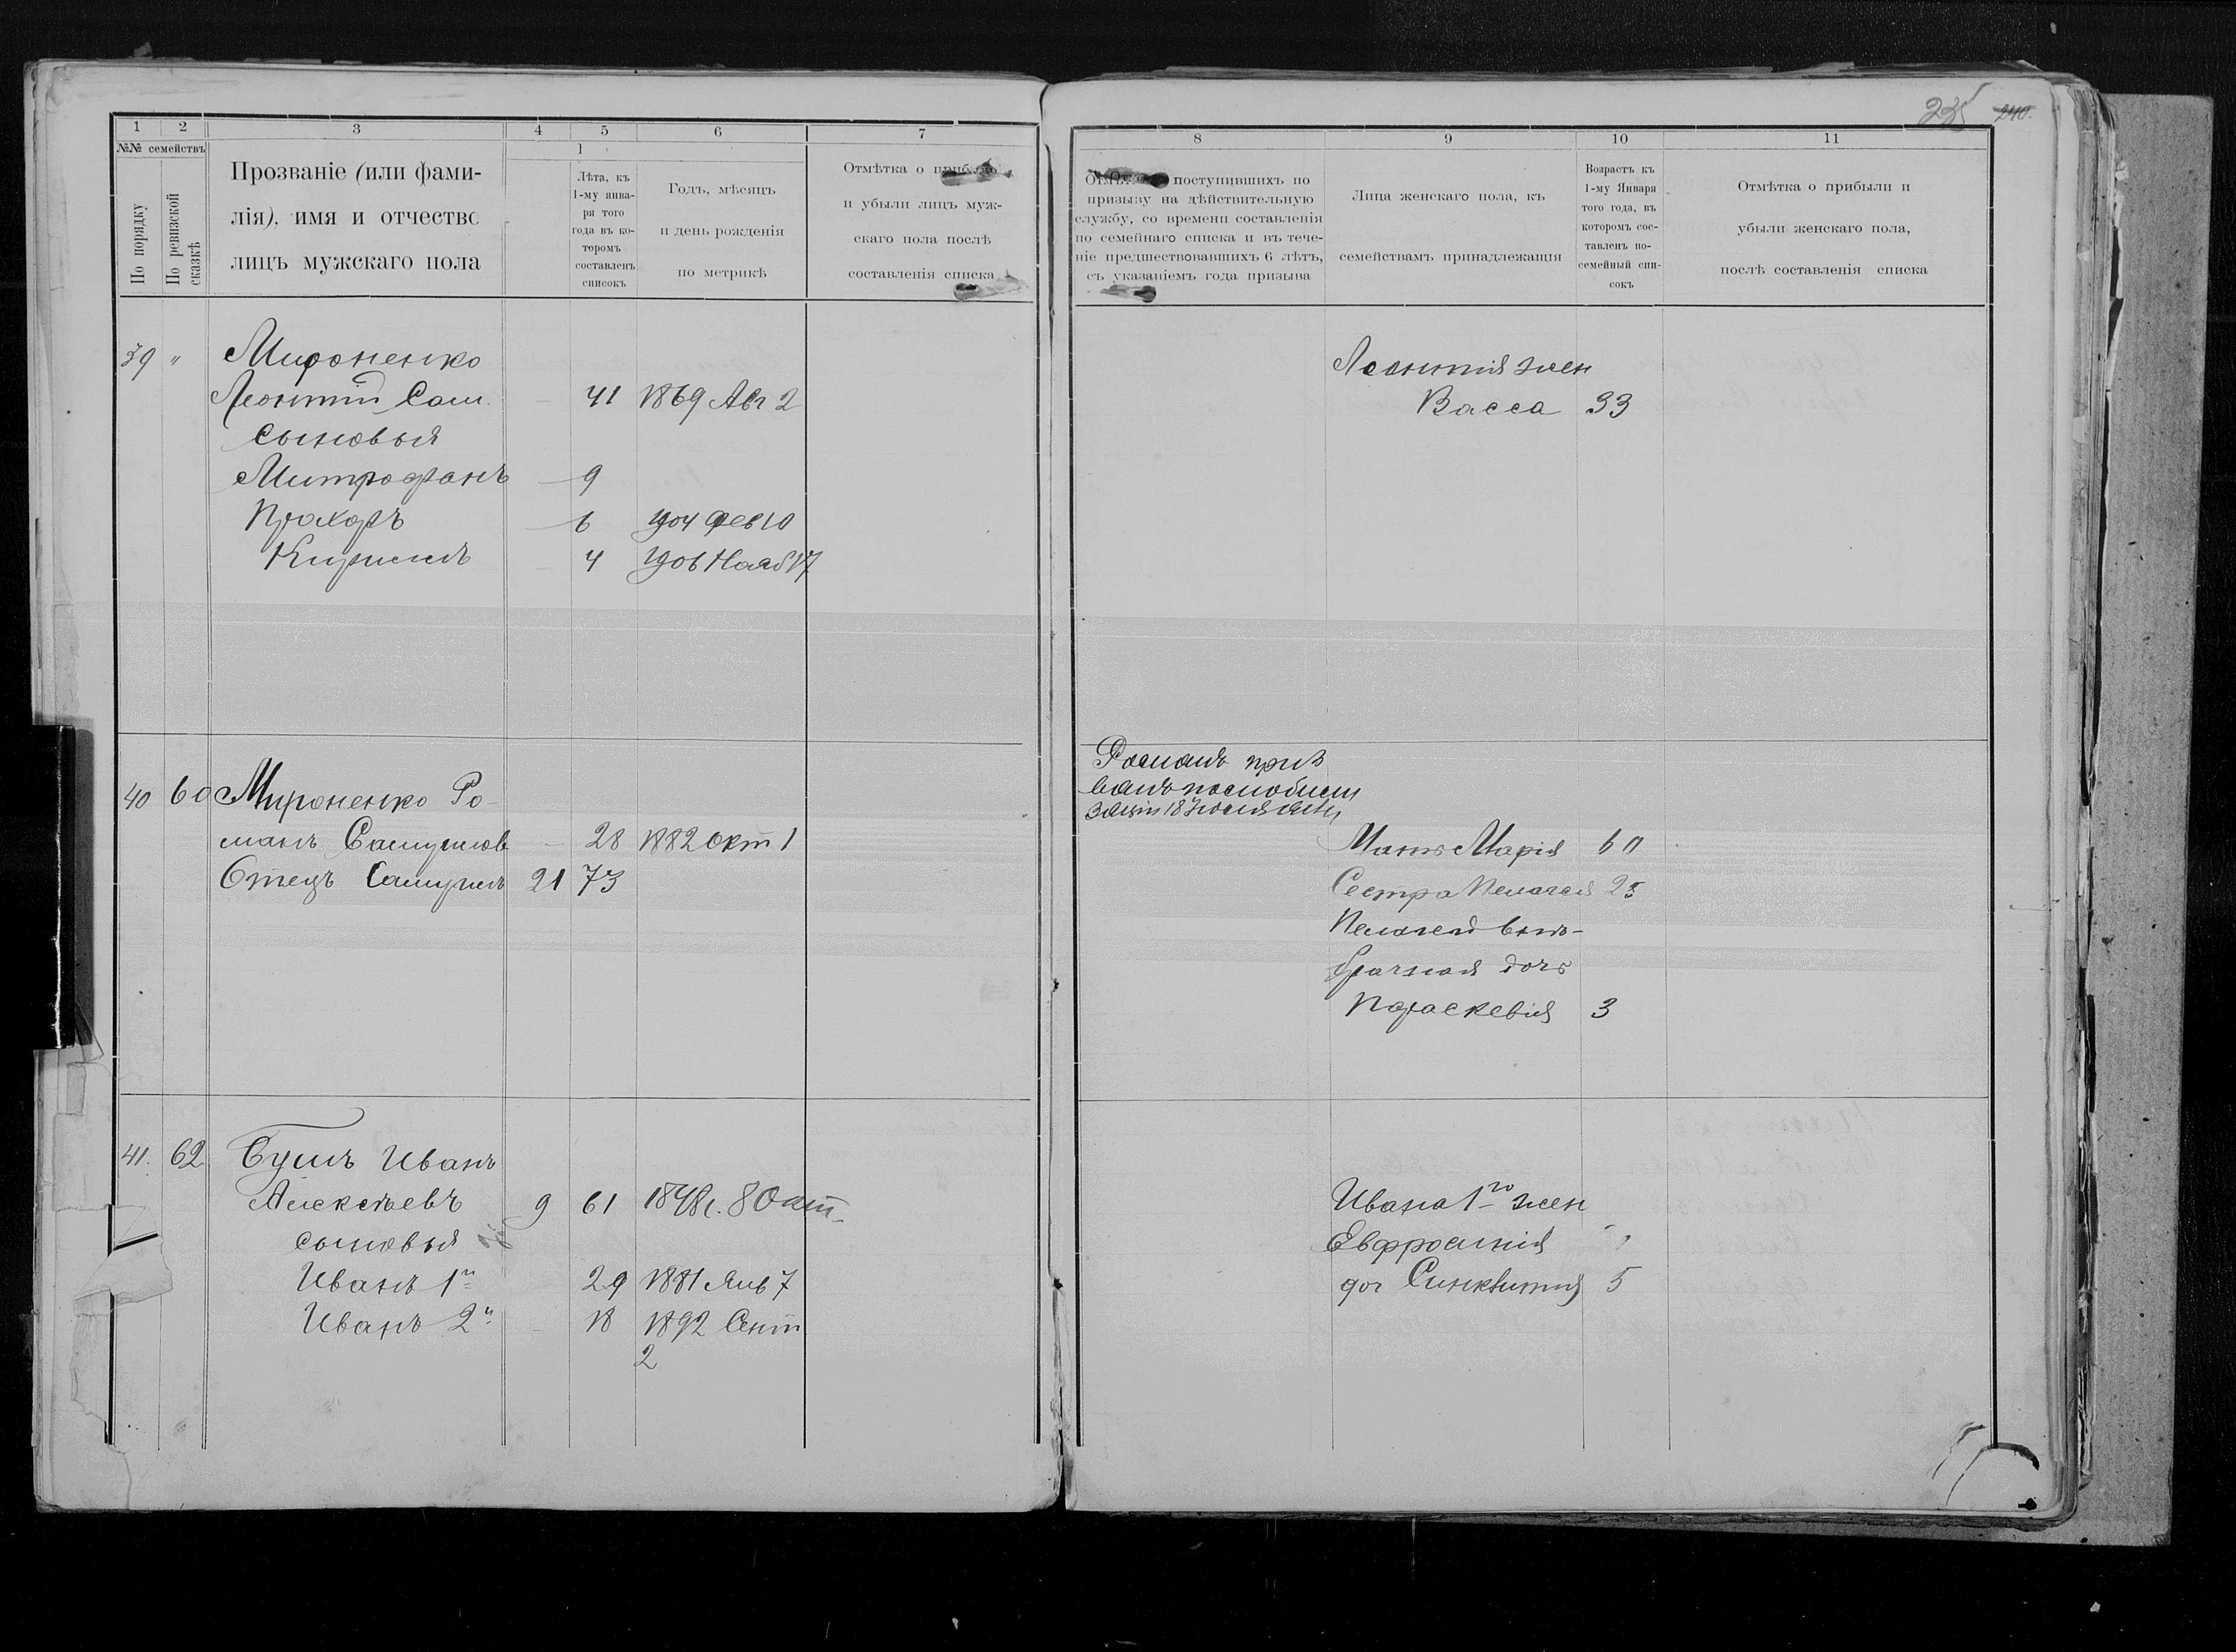 1 2 3 4 5 6 7
№№ семействъ
По порядку
По ревизской сказкѣ
Прозваніе (или фами-
лія), имя и отчество
лицъ мужскаго пола
1
Лѣта, къ
1-му янва-
ря того
года въ ко-
торомъ
составленъ
списокъ
Годъ, мѣсяцъ
и день рожденія
по метрикѣ
Отмѣтка о
и убыли лицъ муж-
скаго пола послѣ
составленія списка
39 " Мироненко
Леонтій Сам. 41 1869 Авг 2
сыновья
Митрофанъ 9
Прохоръ 6 1904 Фев 10
Кирилъ 4 1906 Нояб 17
40 60 Мироненко Ро-
манъ Самуилов 28 1882 Окт 1
Отецъ Самуилъ 21 73
41. 62 Бушъ Иванъ
Алексѣевъ 9 61 1848г. 8 Окт
сыновья
Иванъ 1й 29 1881 Янв 7
Иванъ 2й 18 1892 Сент
2
235 240.
8 9 10 11
поступившихъ по
призыву на дѣйствительную
службу, со времени составленія
по семейнаго списка и въ тече-
ніе предшествовавшихъ 6 лѣтъ,
съ указаніемъ года призыва
Лица женскаго пола, къ
семействамъ принадлежащія
Возрастъ къ
1-му Января
того года, въ
которомъ сос-
тавленъ по-
семейный спи-
сокъ
Отмѣтка о прибыли и
убыли женскаго пола,
послѣ составленія списка
Леонтія жен
Васса 33
Романъ приз
ванъ по мобили
заціи 18 Іюля
Мать Марія 60
Сестра Пелагея 25
Пелагеи внѣ-
брачная дочь
Параскевія 3
Ивана 1го жен
Евфросинія
доч Синклитія 5